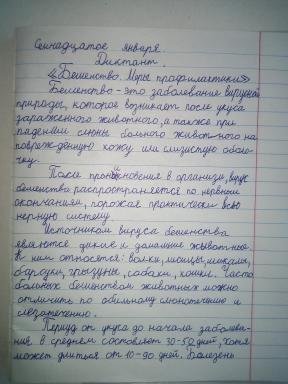 Семнадцатое января.
Диктант.
«Бешенство. Меры профилактики»
Бешенство - это заболевание вирусной
природы, которое возникает после укуса
зараженного животного, а также при
падении слюны больного животного на
поврежденную кожу или слизистую оболо-
чку.
После проникновения в организм, вирус
бешенства распространяется по нервным
окончаниям, порожая практически всю
нервную систему.
Источником вируса бешенства
являются дикие и домашние жывотные.
К ним относятся: волки, лисицы, шакалы,
барсуки, грызуны, собаки, кошки. Часто
больных бешенством животных можно
отличить по обильному слюнотечению и
слезотечению.
Период от укуса до начала заболева-
ния в среднем составляет 30-50 дней, хотя
может длиться от 10-90 дней. Болезнь